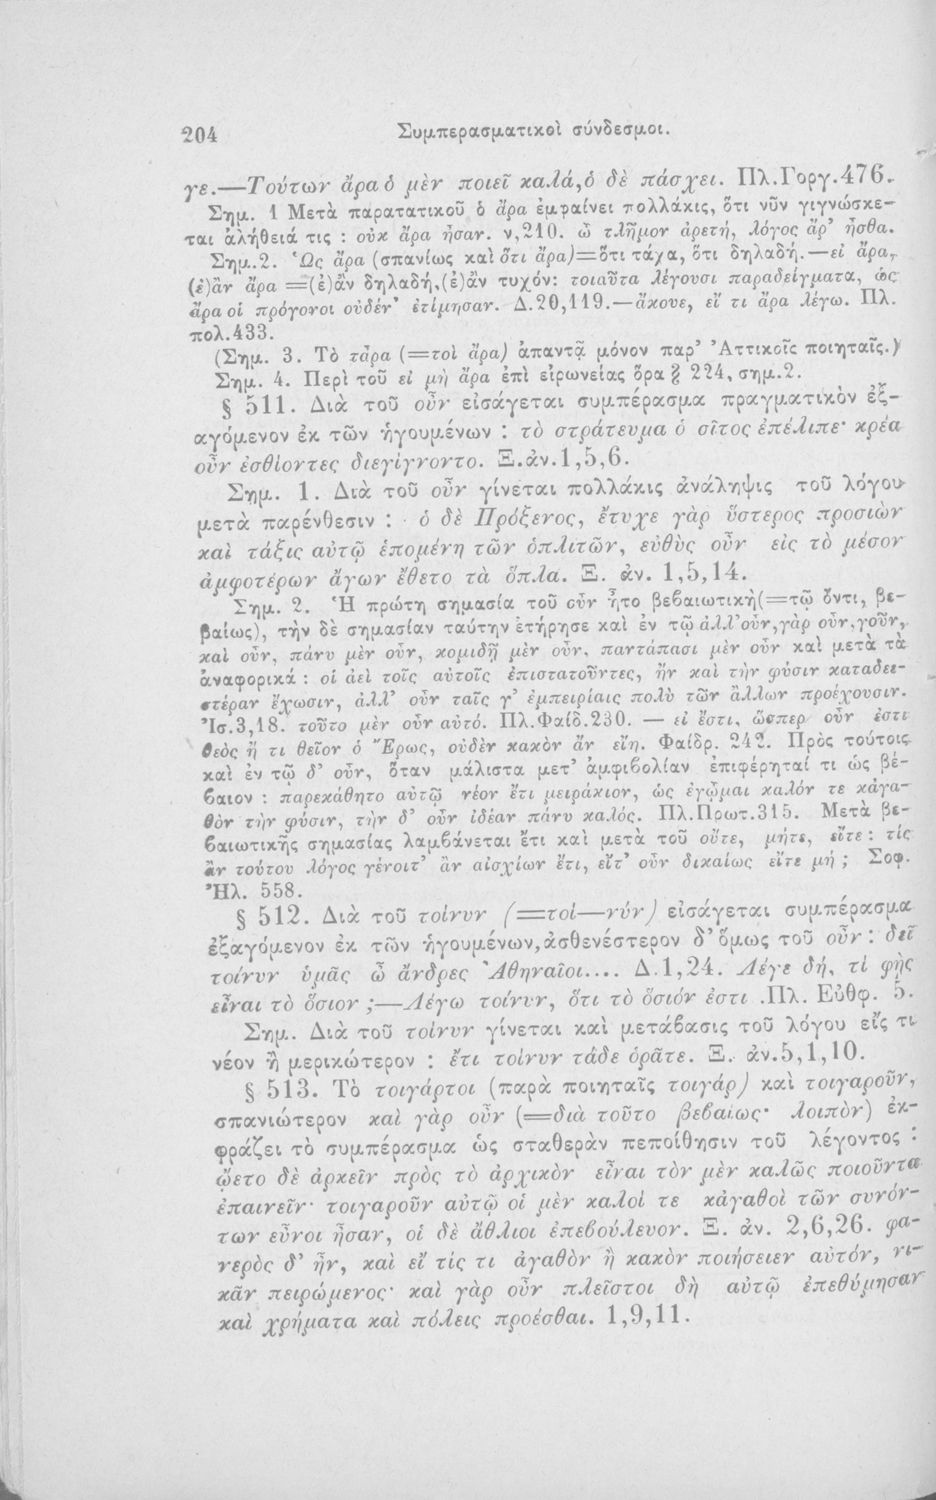 204 Συμπερασματικοὶ σύνδεσμοι.
γε.—Τούτων ἄρα ὁ μὲν ποιεῖ καλά, ὁ δὲ πάσχει. Πλ.Γοργ.476.
Σημ. 1 Μετὰ παρατατικοῦ ὁ ἄρα ἐμφαίνει πολλάκις, ὅτι νῦν γιγνώσκε-
ται ἀλήθειά τις : οὐκ ἄρα ἦσαν. ν,210. ὦ τλῆμον ἀρετή, λόγος ἄρ’ ἦσθα.
Σημ..2. Ὡς ἄρα (σπανίως καὶ ὅτι ἄρα)=ὅτι τάχα, ὅτι δηλαδή.—εἰ ἄρα,
(ἐ)ὰν ἄρα =(ἐ)ὰν δηλαδή,(ἐ)ὰν τυχόν: τοιαῦτα λέγουσι παραδείγματα, ὡς
ἄρα οἱ πρόγονοι οὐδέν’ ἐτίμησαν. Δ.20,119.—ἄκουε, εἴ τι ἄρα λέγω. Πλ.
πολ.433.
(Σημ. 3. Τὸ τἄρα (=τοὶ ἄρα) ἀπαντᾷ μόνον παρ’ Ἀττικοῖς ποιηταῖς.)
Σημ. 4. Περὶ τοῦ εἰ μὴ ἄρα ἐπὶ εἰρωνείας ὅρα § 224, σημ.2.
§ 511. Διὰ τοῦ οὖν εἰσάγεται συμπέρασμα πραγματικὸν ἐξ-
αγόμενον ἐκ τῶν ἡγουμένων : τὸ στράτευμα ὁ σῖτος ἐπέλιπε· κρέα
οὖν ἐσθίοντες διεγίγνοντο. Ξ.ἀν.1,5,6.
Σημ. 1. Διὰ τοῦ οὖν γίνεται πολλάκις ἀνάληψις τοῦ λόγου
μετὰ παρένθεσιν : ὁ δὲ Πρόξενος, ἔτυχε γὰρ ὕστερος προσιὼν
καὶ τάξις αὐτῷ ἑπομένη τῶν ὁπλιτῶν, εὐθὺς οὖν εἰς τὸ μέσον
ἀμφοτέρων ἄγων ἔθετο τὰ ὅπλα. Ξ. ἀν. 1,5,14.
Σημ. 2. Ἡ πρώτη σημασία τοῦ οὖν ἦτο βεβαιωτικὴ(=τῷ ὄντι, βε-
βαίως), τὴν δὲ σημασίαν ταύτην ἐτήρησε καὶ ἐν τῷ ἀλλ’ οὖν,γὰρ οὖν,γοῦν,
καὶ οὖν, πάνυ μὲν οὖν, κομιδῇ μὲν οὖν, παντάπασι μὲν οὖν καὶ μετὰ τὰ
ἀναφορικά : οἱ ἀεὶ τοῖς αὐτοῖς ἐπιστατοῦντες, ἢν καὶ τὴν φύσιν καταδεε-
στέραν ἔχωσιν, ἀλλ’ οὖν ταῖς γ’ ἐμπειρίαις πολὺ τῶν ἄλλων προέχουσιν.
Ἰσ.3,18. τοῦτο μὲν οὖν αὐτό. Πλ.Φαῖδ.230. — εἰ ἔστι, ὥσπερ οὖν ἐστι
θεὸς ἤ τι θεῖον ὁ Ἔρως, οὐδὲν κακὸν ἂν εἴη. Φαῖδρ. 242. Πρὸς τούτοις
καὶ ἐν τῷ δ’ οὖν, ὅταν μάλιστα μετ’ ἀμφιβολίαν ἐπιφέρηταί τι ὡς βέ-
βαιον : παρεκάθητο αὐτῷ νέον ἔτι μειράκιον, ὡς ἐγᾦμαι καλόν τε κἀγα-
θὸν τὴν φύσιν, τὴν δ’ οὖν ἰδέαν πάνυ καλός. Πλ.Πρωτ.315. Μετὰ βε-
βαιωτικῆς σημασίας λαμβάνεται ἔτι καὶ μετὰ τοῦ οὔτε, μήτε, εἴτε : τίς
ἂν τούτου λόγος γένοιτ’ ἂν αἰσχίων ἔτι, εἴτ’ οὖν δικαίως εἴτε μή ; Σοφ.
Ἠλ. 558.
§ 512. Διὰ τοῦ τοίνυν (=τοί—νύν) εἰσάγεται συμπέρασμα
ἐξαγόμενον ἐκ τῶν ἡγουμένων,ἀσθενέστερον δ’ ὅμως τοῦ οὖν : δεῖ
τοίνυν ὑμᾶς ὦ ἄνδρες Ἀθηναῖοι.... Δ.1,24. Λέγε δή, τί φῂς
εἶναι τὸ ὅσιον ;—Λέγω τοίνυν, ὅτι τὸ ὅσιόν ἐστι .Πλ. Εὐθφ. 5.
Σημ. Διὰ τοῦ τοίνυν γίνεται καὶ μετάβασις τοῦ λόγου εἴς τι
νέον ἢ μερικώτερον : ἔτι τοίνυν τάδε ὁρᾶτε. Ξ. ἀν.5,1,10.
§ 513. Τὸ τοιγάρτοι (παρὰ ποιηταῖς τοιγάρ) καὶ τοιγαροῦν,
σπανιώτερον καὶ γὰρ οὖν (=διὰ τοῦτο βεβαίως· λοιπὸν) ἐκ-
φράζει τὸ συμπέρασμα ὡς σταθερὰν πεποίθησιν τοῦ λέγοντος :
ᾤετο δὲ ἀρκεῖν πρὸς τὸ ἀρχικὸν εἶναι τὸν μὲν καλῶς ποιοῦντα
ἐπαινεῖν· τοιγαροῦν αὐτῷ οἱ μὲν καλοί τε κἀγαθοὶ τῶν συνόν-
των εὖνοι ἦσαν, οἱ δὲ ἄθλιοι ἐπεβούλευον. Ξ. ἀν. 2,6,26. φα-
νερὸς δ’ ἦν, καὶ εἴ τίς τι ἀγαθὸν ἢ κακὸν ποιήσειεν αὐτόν, νι-
κᾶν πειρώμενος· καὶ γὰρ οὖν πλεῖστοι δὴ αὐτῷ ἐπεθύμησαν
καὶ χρήματα καὶ πόλεις προέσθαι. 1,9,11.